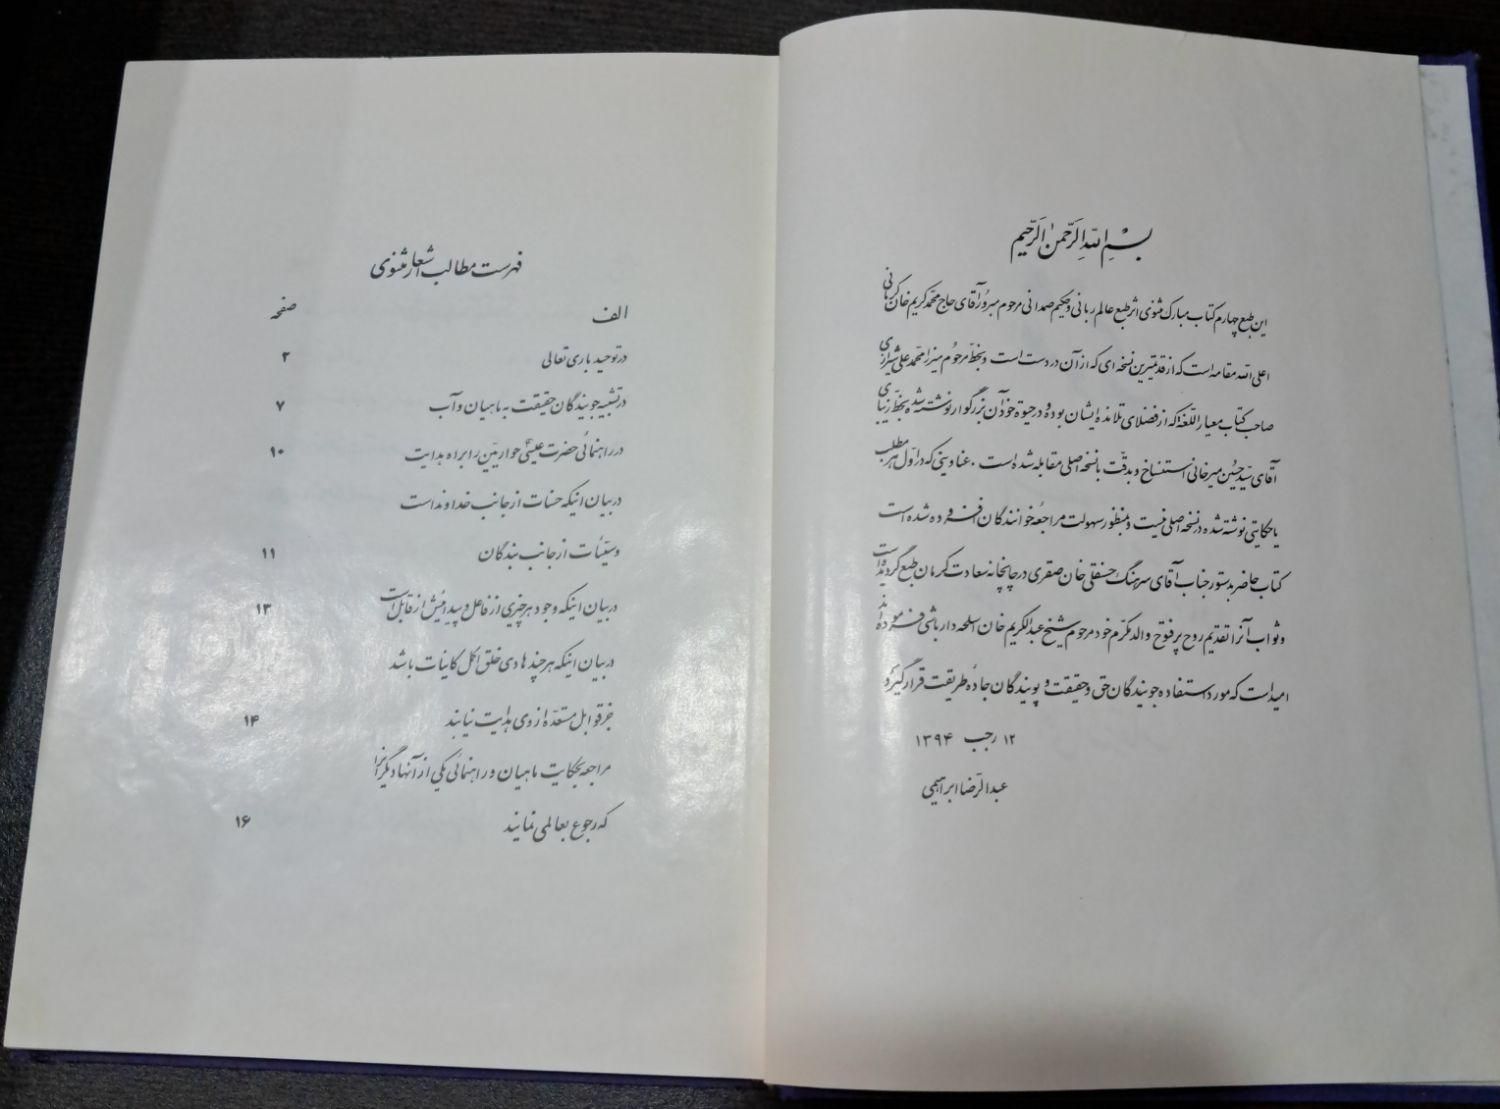 بسم الله الرحمن الرحیم
این طبع چهارم کتاب مبارک مثنوی اثر طبع عالم ربانی و حکیم صمدانی مرحوم مبرور آقای حاج محمد کریم خان کرمانی
اعلی الله مقامه است که از قدیمترین نسخه ای که از آن در دست است و بخط مرحوم میرزا محمد علی شیرازی
صاحب کتاب معیار اللغة که از فضلای تلامذه ایشان بوده و در حیوة خود آن بزرگوار نوشته شده بخط زیبای
آقای سید حسین میرخانی استنساخ و بدقت با نسخه اصلی مقابله شده است . عناوینی که در اول هر مطلب
یا حکایتی نوشته شده در نسخه اصلی نیست و بمنظور سهولت مراجعه خوانندگان افزوده شده است
کتاب حاضر بدستور جناب آقای سرهنگ حسنقلی خان صفری در چاپخانه سعادت کرمان طبع گردیده است
و ثواب آنرا تقدیم روح پر فتوح والد مکرم خود مرحوم شیخ عبدالکریم خان اسلحه دار باشی فرموده اند
امید است که مورد استفاده جویندگان حق و حقیقت و پویندگان جاده طریقت قرار گیرد
۱۲ رجب ۱۳۹۴
عبدالرضا ابراهیمی
فهرست مطالب اشعار مثنوی
الف صفحه
در توحید باری تعالی ۲
در تشبیه جویندگان حقیقت به ماهیان و آب ۷
در راهنمائی حضرت عیسی ع حواریین را براه هدایت ۱۰
در بیان اینکه حسنات از جانب خداوند است
و سیئات از جانب بندگان ۱۱
در بیان اینکه وجود هر چیزی از فاعل و پیدایش از قابل است ۱۳
در بیان اینکه هر چند هادی خلق اکمل کاینات باشد
جز قوابل مستعده از وی هدایت نیابند ۱۴
مراجعه بحکایت ماهیان و راهنمائی یکی از آنها دیگرانرا
که رجوع بعالمی نمایند ۱۶